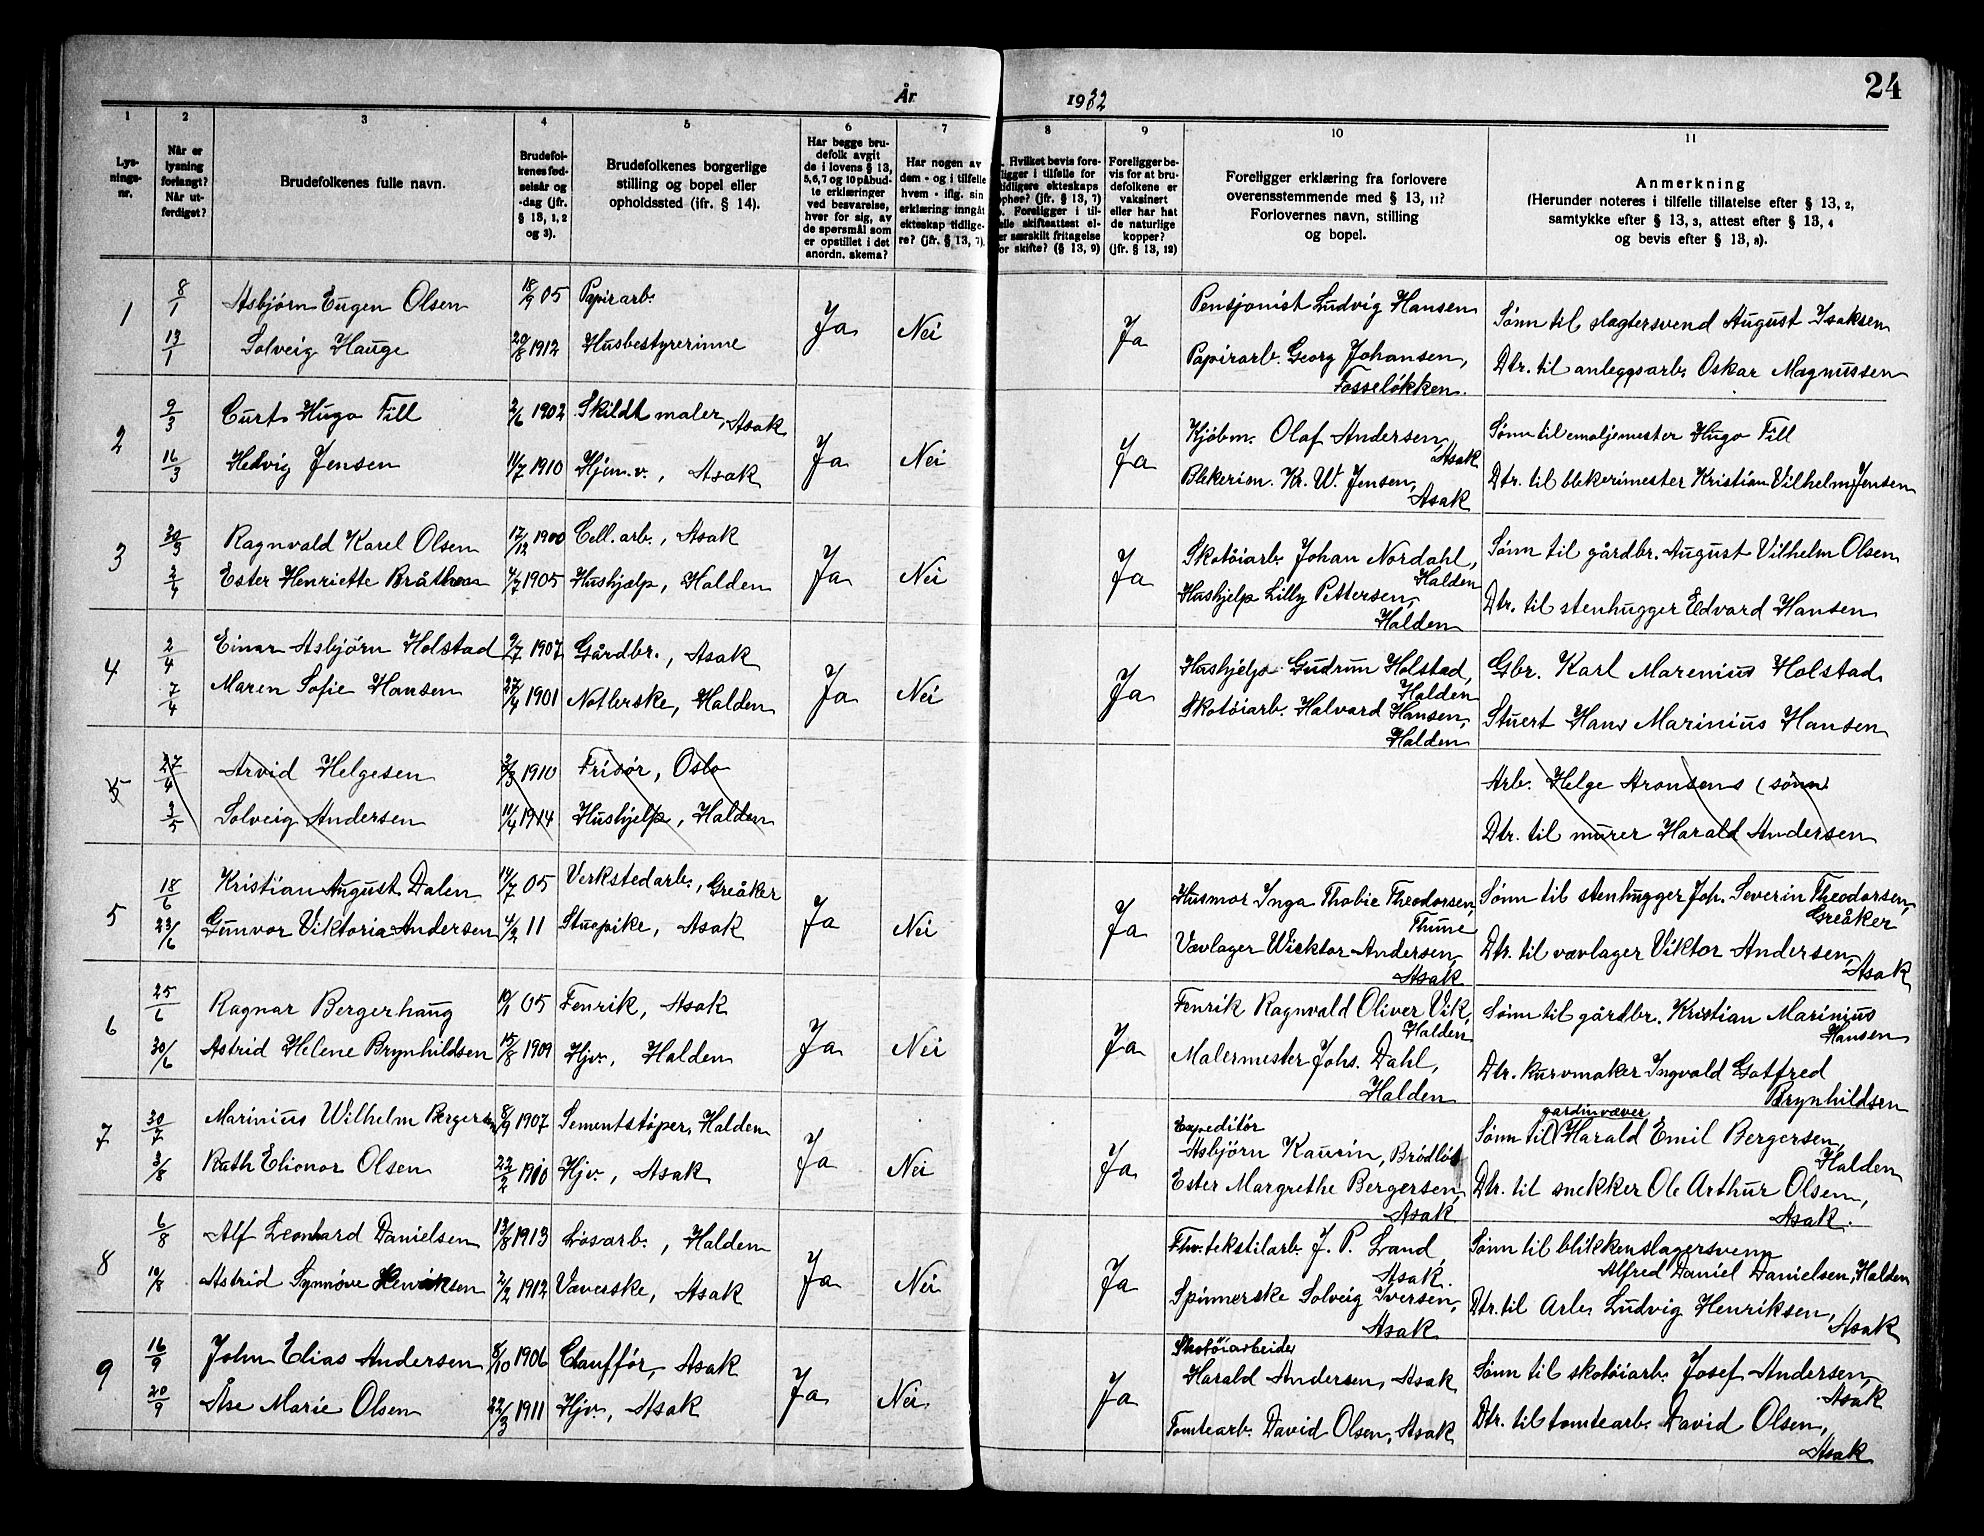 24
År 1932
1 2 3 4 5 6 7 8 9 10 11
Lysningsnr.
Når er lysning forlangt? Når utferdiget?
Brudefolkenes fulle navn.
Brudefolkenes fødselsår og -dag (jfr. § 13, 1, 2 og 3).
Brudefolkenes borgerlige stilling og bopel eller opholdssted (ifr. § 14).
Har begge brudefolk avgit de i lovens § 13, 5, 6, 7 og 10 påbudte erklæringer ved besvarelse, hver for sig, av de spørsmål som er opstillet i det anordn. skema?
Har nogen av dem - og i tilfelle hvem - iflg. sin erklæring inngåt ekteskap tidligere? (jfr. § 13, 7).
Hvilket bevis foreligger i tilfelle for tidligere ekteskaps ophør? (jfr. § 13, 7)
Foreligger i tilfelle skifteattest eller særskilt fritagelse for skifte? (§ 13, 9)
Foreligger bevis for at brudefolkene er vaksinert eller har hat de naturlige kopper? (jfr. § 13, 12)
Foreligger erklæring fra forlovere overensstemmende med § 13, 11? Forlovernes navn, stilling og bopel.
Anmerkning
(Herunder noteres i tilfelle tillatelse efter § 13, 2, samtykke efter § 13, 3, attest efter § 13, 4 og bevis efter § 13, 8).
1 8/1 Asbjørn Eugen Olsen 18/9 05 Papirarb. Ja Nei Ja Pensjonist Ludvig Hansen Sønn til slagtersvend August Isaksen
13/1 Solveig Hauge 20/8 1912 Husbestyrerinne Papirarb. Georg Johansen, Fosseløkken. Dtr. til anleggsarb. Oskar Magnussen
2 9/3 Curt Hugo Till 2/6 1902 Skildtmaler, Asak Ja Nei Ja Kjøbm. Olaf Andersen, Asak Sønn til emaljemester Hugo Till
16/3 Hedvig Jensen 11/7 1910 Hjem.v., Asak Blekerim. Kr. W. Jensen, Asak Dtr. til blekerimester Kristian Vilhelm Jensen
3 30/3 Ragnvald Karel Olsen 17/12 1900 Cell. arb., Asak Ja Nei Ja Skotøiarb. Johan Nordahl, Halden Sønn til gårdbr. August Vilhelm Olsen
2/4 Ester Henriette Bråthen 4/7 1905 Hushjælp, Halden Hushjelp Lilly Pettersen, Halden Dtr. til stenhugger Edvard Hansen
4 2/4 Einar Asbjørn Holstad 9/7 1907 Gårdbr., Asak Ja Nei Ja Hushjelp Gudrun Holstad, Halden Gbr. Karl Marenius Holstad
7/4 Maren Sofie Hansen 27/4 1901 Notlerske, Halden Skotøiarb. Halvard Hansen, Halden Stuert Hans Marinius Hansen
5 27/4 Arvid Helgesen 3/3 1910 Frisør, Oslo Arb. Helge Aronsens (sønn)
3/5 Solveig Andersen 11/4 1914 Hushjelp, Halden Dtr. til murer Harald Andersen
5 18/6 Kristian August Dalen 14/7 05 Verkstedarb., Greåker Ja Nei Ja Husmor Inga Thobie Theodorsen, Thune Sønn til stenhugger Joh. Severin Theodorsen, Greåker
23/6 Gunvor Viktoria Andersen 4/2 11 Stuepike, Asak Vævlager Wicktor Andersen, Asak Dtr. til vævlager Viktor Andersen, Asak
6 25/6 Ragnar Bergerhaug 19/1 05 Fenrik, Asak Ja Nei Ja Fenrik Ragnvald Oliver Vik, Halden Sønn til gårdbr. Kristian Marinius Hansen
30/6 Astrid Helene Brynhildsen 15/8 1909 Hjv., Halden Malermester Johs. Dahl, Halden Dtr. kurvmaker Ingvald Gotfred Brynhildsen
7 30/7 Marinius Wilhelm Bergersen 8/9 1907 Sementstøper, Halden Ja Nei Ja Expeditør Asbjørn Kaurin, Brødløs Sønn til gardinvæver Harald Emil Bergersen, Halden
3/8 Ruth Elionor Olsen 22/2 1910 Hjv., Asak Ester Margrethe Bergersen, Asak Dtr. til snekker Ole Arthur Olsen, Asak.
8 6/8 Alf Leonhard Danielsen 13/8 1913 Løsarb., Halden Ja Nei Ja Fhv. tekstilarb. J. P. Land, Asak. Sønn til blikkenslagersvenn Alfred Daniel Danielsen, Halden
10/8 Astrid Synnøve Henriksen 2/2 1912 Væverske, Asak Spinnerske Solveig Iversen, Asak Dtr. til Arb. Ludvig Henriksen, Asak
9 16/9 John Elias Andersen 8/10 1906 Chauffør, Asak Ja Nei Ja Skotøiarbeider Harald Andersen, Asak Sønn til skotøiarb. Josef Andersen, Asak
20/9 Åse Marie Olsen 22/3 1911 Hjv., Asak Tomtearb. David Olsen, Asak Dtr. til tomtearb. David Olsen, Asak